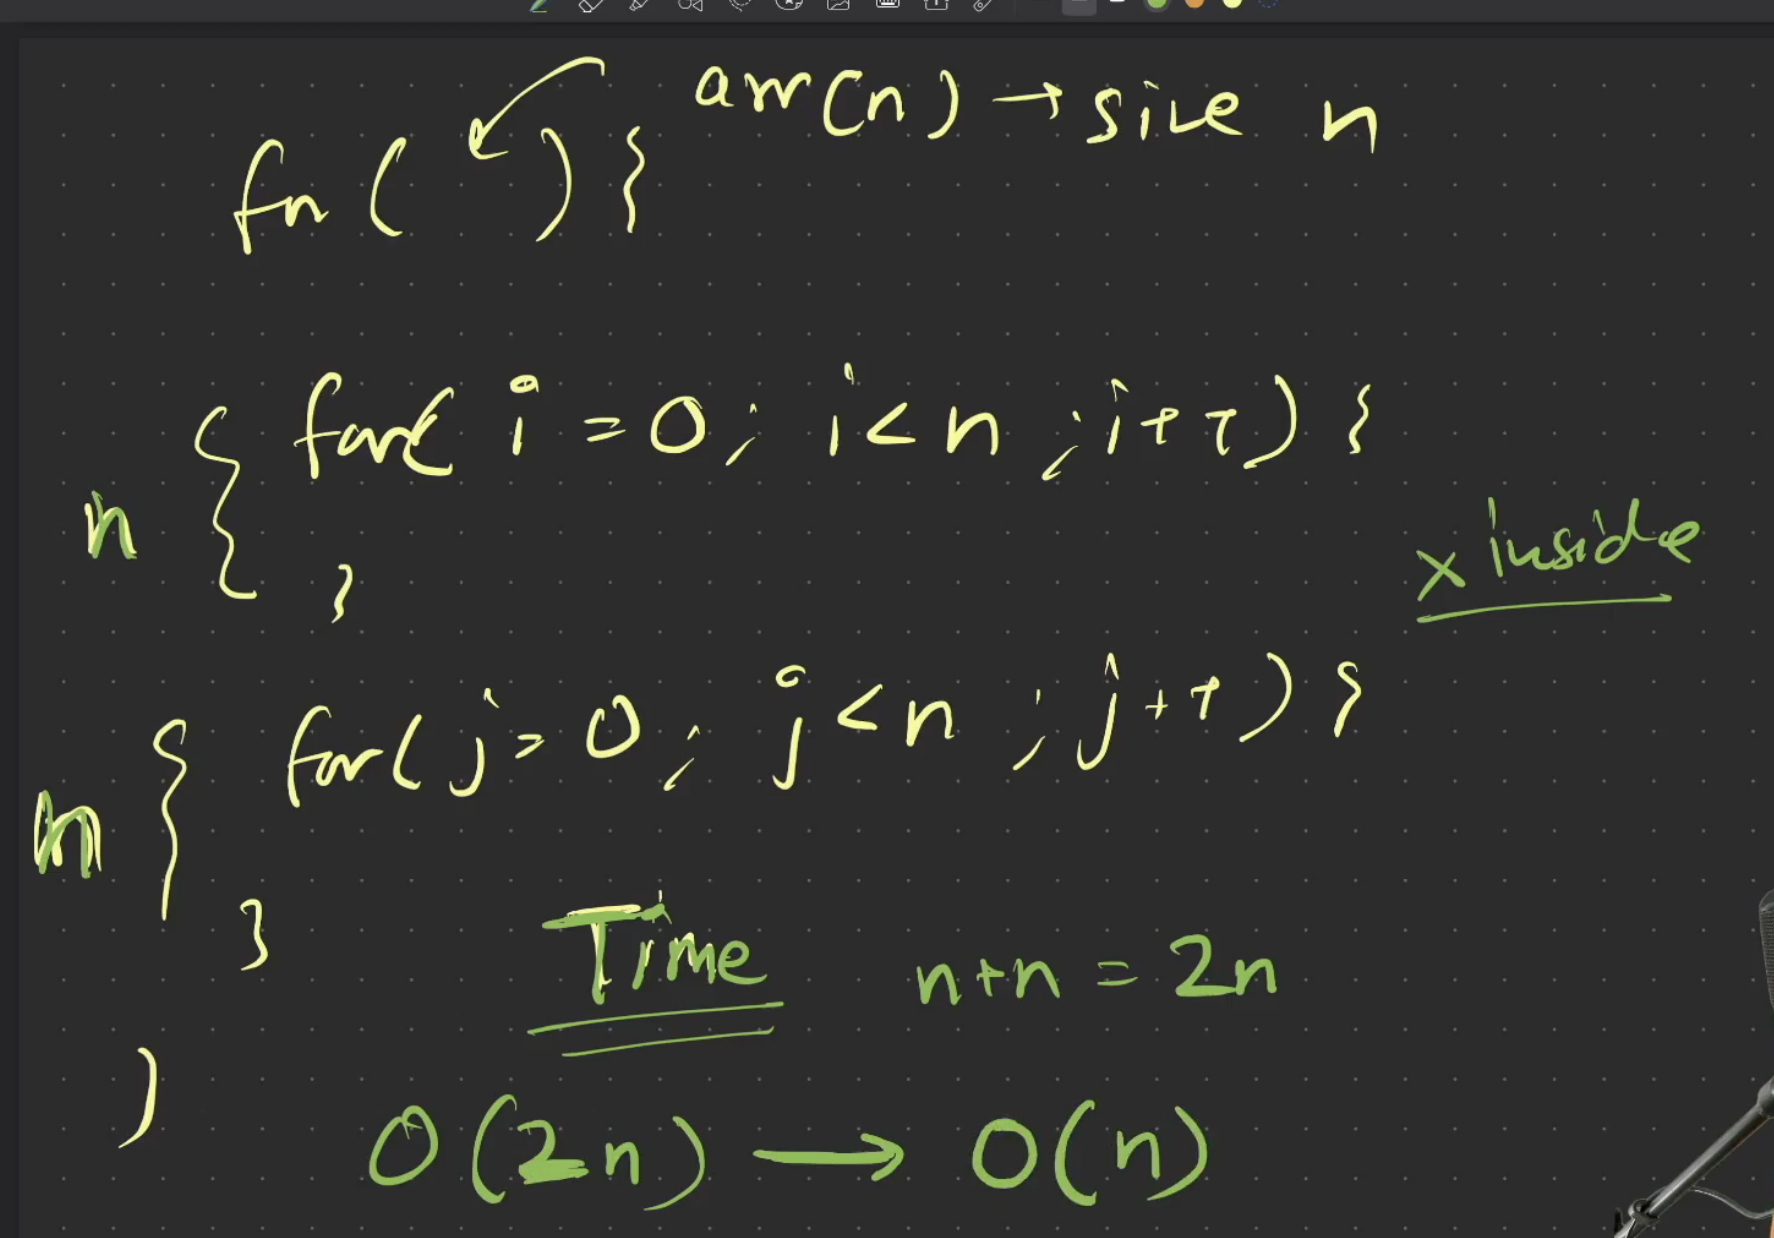 arr(n) → size n
fn( ) {
n { for( i = 0; i < n ; i++) {
}
x inside
n { for( j = 0; j < n ; j++) {
}
Time n+n = 2n
}
O(2n) → O(n)